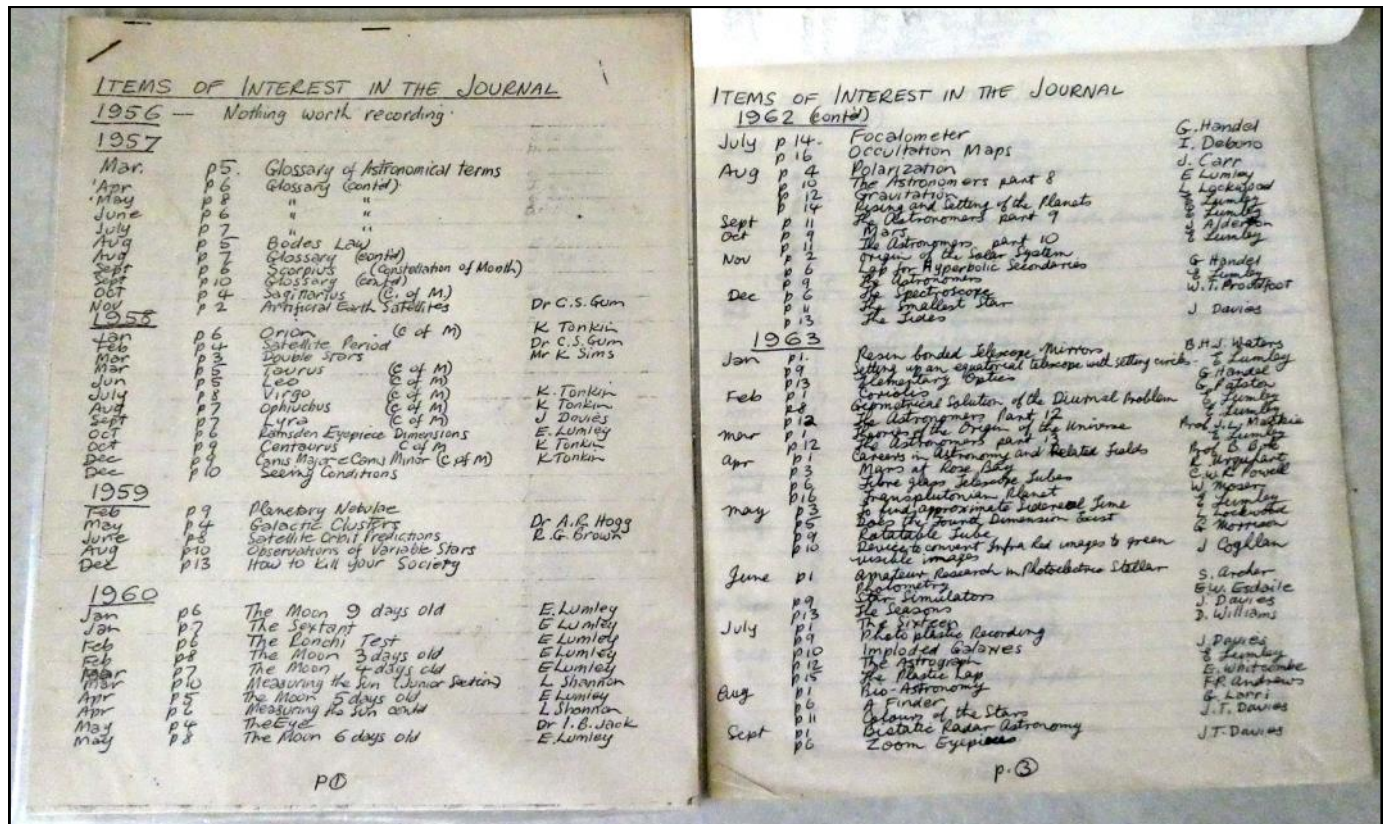 ITEMS OF INTEREST IN THE JOURNAL
1956 — Nothing worth recording.
1957
Mar. p5. Glossary of Astronomical terms
Apr p6 Glossary (contd)
May p8 " "
June p6 " "
July p7 " "
Aug p5 Bodes Law
Aug p7 Glossary (contd)
Sept p6 Scorpius (Constellation of Month)
Sept p10 Glossary (contd)
Oct p4 Sagittarius (C. of M.)
Nov p2 Artificial Earth Satellites Dr C.S. Gum
1958
Jan p6 Orion (C of M) K Tonkin
Feb p4 Satellite Period Dr C.S. Gum
Mar p3 Double Stars Mr K Sims
Mar p5 Taurus (C of M)
Jun p5 Leo (C of M)
July p8 Virgo (C of M) K. Tonkin
Aug p7 Ophiuchus (C of M) K Tonkin
Sept p7 Lyra (C of M) J Davies
Oct p6 Ramsden Eyepiece Dimensions E. Lumley
Oct p9 Centaurus C of M K Tonkin
Dec Canis Major & Canis Minor (C of M) K Tonkin
Dec p10 Seeing Conditions
1959
Feb p9 Planetary Nebulae
May p4 Galactic Clusters Dr A.R. Hogg
June p8 Satellite Orbit Predictions R.G. Brown
Aug p10 Observations of Variable Stars
Dec p13 How to Kill your Society
1960
Jan p6 The Moon 9 days old E. Lumley
Jan p7 The Sextant E Lumley
Feb p6 The Ronchi Test E Lumley
Feb p8 The Moon 3 days old E Lumley
Mar p7 The Moon 4 days old E Lumley
Mar p10 Measuring the Sun (Junior Section) L. Shannon
Apr p5 The Moon 5 days old E Lumley
Apr p6 Measuring the Sun contd L Shannon
May p4 The Eye Dr I.B. Jack
May p8 The Moon 6 days old E. Lumley
p①
ITEMS OF INTEREST IN THE JOURNAL
1962 (contd)
July p14. Focalometer G. Handel
p16 Occultation Maps I. Debono
Aug p4 Polarization J. Carr
p10 The Astronomers part 8 E Lumley
p12 Gravitation L Lockwood
p14 Rising and Setting of the Planets E Lumley
Sept p11 The Astronomers part 9 E Lumley
Oct p9 Mars Alderton
p11 The Astronomers part 10 E Lumley
Nov p2 Origin of the Solar System
p6 Lap for Hyperbolic Secondaries G Handel
p9 The Astronomers E Lumley
Dec p6 The Spectroscope W.T. Proudfoot
p11 The Smallest Star
p13 The Tides J Davies
1963
Jan p1. Resin bonded Telescope Mirrors B.H.J. Waters
p9 Setting up an equatorial telescope with setting circles- E Lumley
p13 Elementary Optics G. Handel
Feb p1 Coriolis G.
p8 Geometrical Solution of the Diurnal Problem E Lumley
p12 The Astronomers Part 12 E Lumley
Mar p1 of the Origin of the Universe Prof J.L.
p12 The Astronomers part 13 E Lumley
Apr p1 Careers in Astronomy and Related Fields Prof B. Bok
p3 Mars at Rose Bay R Urquhart
p6 Fibre glass Telescope Tubes C.W.R. Powell
p16 Transplutonian Planet W Moser
May p3 To find approximate Sidereal Time E Lumley
p5 Does the Fourth Dimension Exist L Lockwood
p9 Rotatable Tube G Morrison
p10 Device to convert Infra Red images to green J Coghlan
visible images
June p1 Amateur Research in Photoelectric Stellar S. Archer
Photometry
p9 Star Simulators E.W. Esdaile
p13 The Seasons J. Davies
July p1 The Sixteen D. Williams
p9 Photo plastic Recording
p10 Imploded Galaxies J. Davies
p12 The Astrograph E Lumley
p15 The Plastic Lap E. Whitcombe
Aug p1 Bio-Astronomy F.P. Andrews
p6 A Finder G. Larri
p11 Colours of the Stars J.T. Davies
Sept p1 Bistatic Radar Astronomy
p6 Zoom Eyepieces J.T. Davies
p.③